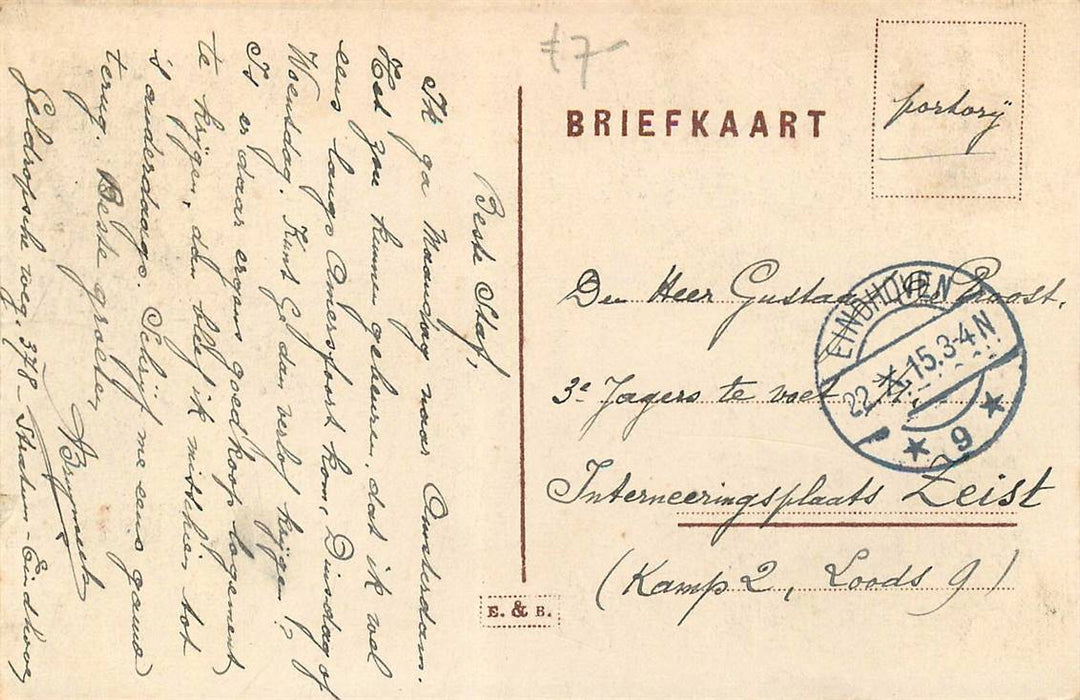 €7
BRIEFKAART
portvrij
Den Heer Gustaaf Proost,
3e Jagers te voet
Interneeringsplaats Zeist
(Kamp 2, Loods 9)
EINDHOVEN
22. X. 15. 3-4 N
9
E. & B.
Beste Staf,
Ik ga Maandag naar Amsterdam.
Het zou kunnen gebeuren, dat ik wel
eens langs Amersfoort kom, Dinsdag of
Woensdag. Kunt Gij dan verlof krijgen?
Is er daar ergens goedkoop logement
te krijgen, dan blijf ik misschien tot
's anderdaags. Schrijf me eens gauw
terug. Beste groeten,
Geldropsche weg. 378 - Stratum - Eindhoven